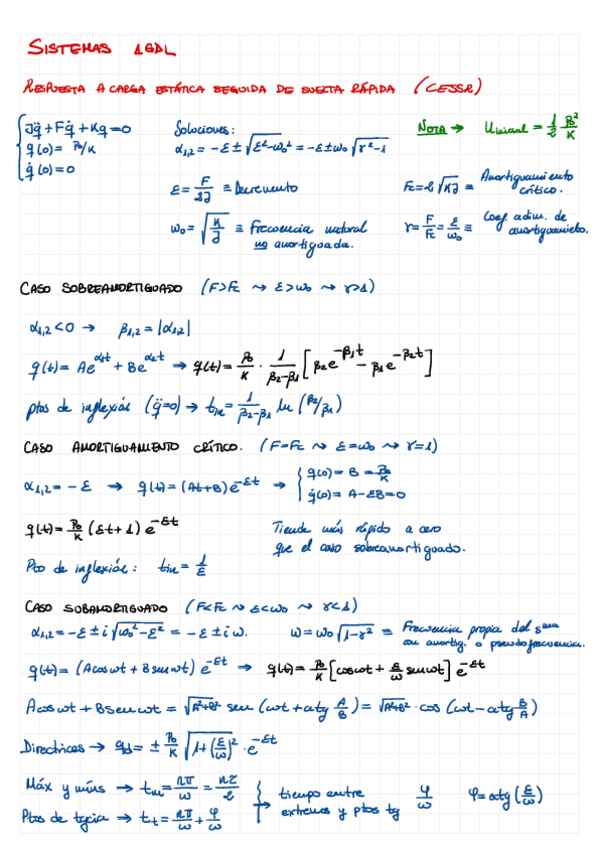 SISTEMAS 1GDL
RESPUESTA A CARGA ESTÁTICA SEGUIDA DE SUELTA RÁPIDA (CESSR)
{ Jq̈ + Fq̇ + Kq = 0 Soluciones: NOTA → U inicial = 1/2 P₀²/K
q(0) = P₀/K α₁,₂ = -ε ± √(ε²-ω₀²) = -ε ± ω₀ √(r²-1)
q̇(0) = 0
ε = F/2J ≡ Decremento Fc = 2√(KJ) ≡ Amortiguamiento crítico.
ω₀ = √(K/J) ≡ Frecuencia natural no amortiguada. r = F/Fc = ε/ω₀ ≡ Coef adim. de amortiguamiento.
CASO SOBREAMORTIGUADO (F>Fc ⇝ ε>ω₀ ⇝ r>1)
α₁,₂ < 0 → β₁,₂ = |α₁,₂|
q(t) = Ae^α₁t + Be^α₂t → q(t) = P₀/K · 1/(β₂-β₁) [β₂e^-β₁t - β₁e^-β₂t]
ptos de inflexión (q̈=0) → t in = 1/(β₂-β₁) ln (β₂/β₁)
CASO AMORTIGUAMIENTO CRÍTICO. (F=Fc ⇝ ε=ω₀ ⇝ r=1)
α₁,₂ = -ε → q(t) = (At+B)e^-εt → { q(0) = B = P₀/K
q̇(0) = A-εB = 0
q(t) = P₀/K (εt+1) e^-εt Tiende más rápido a cero
que el caso sobreamortiguado.
Pto de inflexión: t in = 1/ε
CASO SUBAMORTIGUADO (F<Fc ⇝ ε<ω₀ ⇝ r<1)
α₁,₂ = -ε ± i√(ω₀²-ε²) = -ε ± iω. ω = ω₀√(1-r²) ≡ Frecuencia propia del sma con amortig. o pseudofrecuencia.
q(t) = (Acosωt + Bsenωt) e^-εt → q(t) = P₀/K [cosωt + ε/ω senωt] e^-εt
Acosωt + Bsenωt = √(A²+B²) sen (ωt + atg A/B) = √(A²+B²) · cos (ωt - atg B/A)
Directrices → qd = ± P₀/K √(1+(ε/ω)²) · e^-εt
Máx y míns → tm = nπ/ω = nτ/2 } tiempo entre φ/ω φ = atg (ε/ω)
Ptos de tgcia → tt = nπ/ω + φ/ω extremos y ptos tg